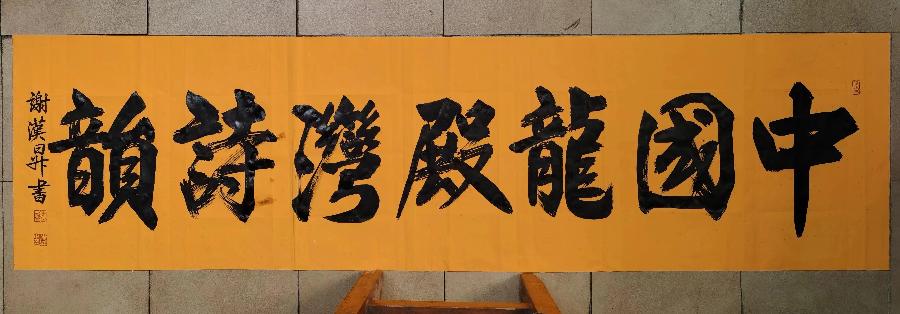 中國龍殿灣詩韻
謝漢昇書